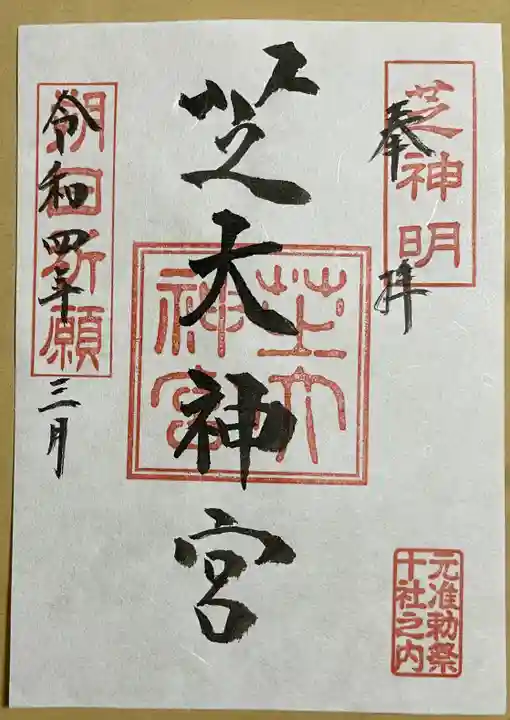 芝神明
奉拝
芝大神宮
芝大
神宮
朔日祈願
令和四年三月
元准勅祭
十社之内